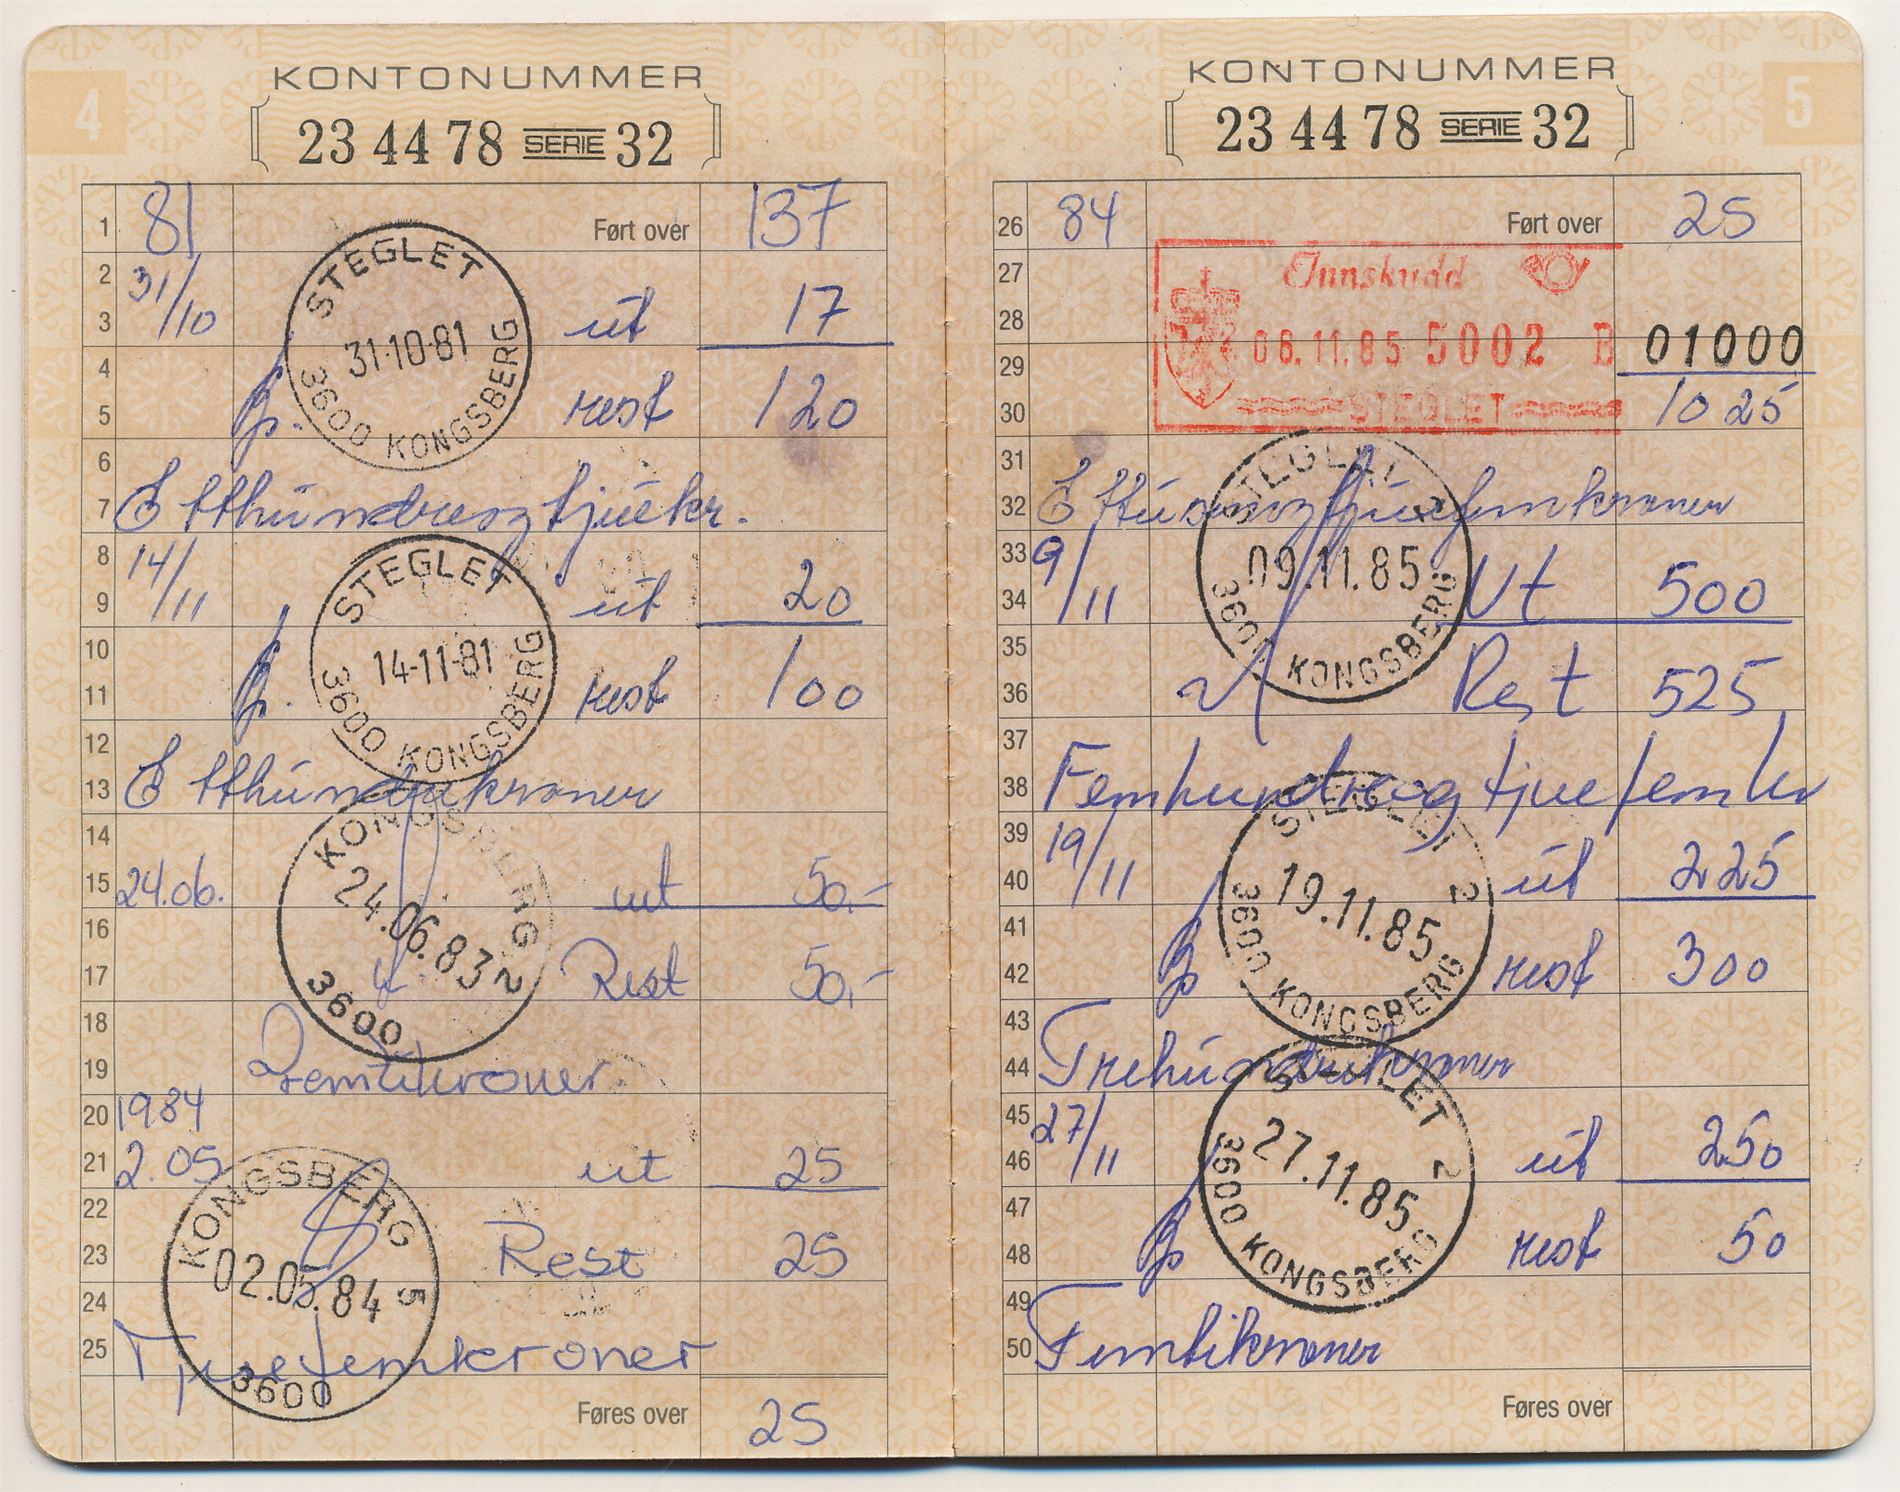 4
KONTONUMMER
23 44 78 SERIE 32
1 81 Ført over 137
2 31/10
STEGLET
31-10-81
3600 KONGSBERG
3 ut 17
4
5 rest 120
6
7 Etthundreogtjuekr.
8 14/11
STEGLET
14-11-81
3600 KONGSBERG
9 ut 20
10
11 rest 100
12
13 Etthundrekroner
14
KONGSBERG
24.06.83
2
3600
15 24.06. ut 50,-
16
17 Rest 50,-
18
19 Femtikroner
20 1984
21 2.05 ut 25
KONGSBERG
02.05.84
5
3600
22
23 Rest 25
24
25 Tjuefemkroner
Føres over 25
5
KONTONUMMER
23 44 78 SERIE 32
26 84 Ført over 25
27 Innskudd
28
08.11.85 5002 B 01000
29
30 STEGLET 1025
31
32 Ettusenogtjuefemkroner
STEGLET
2
09.11.85
3600 KONGSBERG
33 9/11
34 Ut 500
35
36 Rest 525
37
38 Femhundreogtjuefemkr
39 19/11
STEGLET
2
19.11.85
3600 KONGSBERG
40 ut 225
41
42 rest 300
43
44 Trehundrekroner
45 27/11
STEGLET
2
27.11.85
3600 KONGSBERG
46 ut 250
47
48 rest 50
49
50 Femtikroner
Føres over